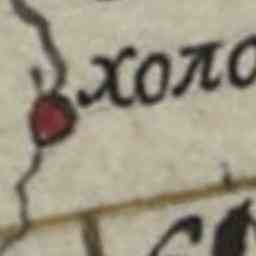 холо